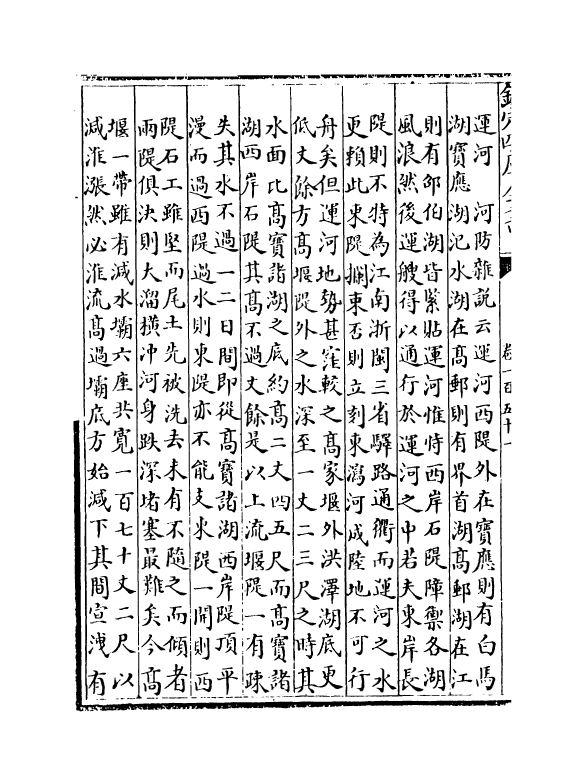 欽定四庫全書
運河　河防雜說云運河西隄外在寶應則有白馬
湖寶應湖氾水湖在髙郵則有界首湖髙郵湖在江
則有邵伯湖皆緊貼運河惟恃西岸石隄障禦各湖
風浪然後運艘得以通行於運河之中若夫東岸長
隄則不特為江南浙閩三省驛路通衢而運河之水
更賴此東隄攔束否則立刻東瀉河成陸地不可行
舟矣但運河地勢甚窪較之髙家堰外洪澤湖底更
低丈餘方髙堰隄外之水深至一丈二三尺之時其
水面比髙寶諸湖之底約髙二丈四五尺而髙寶諸
湖西岸石隄其髙不過丈餘是以上流堰隄一有疎
失其水不過一二日間即從髙寶諸湖西岸隄頂平
漫而過西隄過水則東隄亦不能支東隄一開則西
隄石工雖堅而尾土先被洗去未有不隨之而傾者
兩隄俱決則大溜橫冲河身跌深堵塞最難矣今髙
堰一帶雖有減水壩六座共寛一百七十丈二尺以
減淮漲然必淮流髙過壩底方始減下其間宣洩有